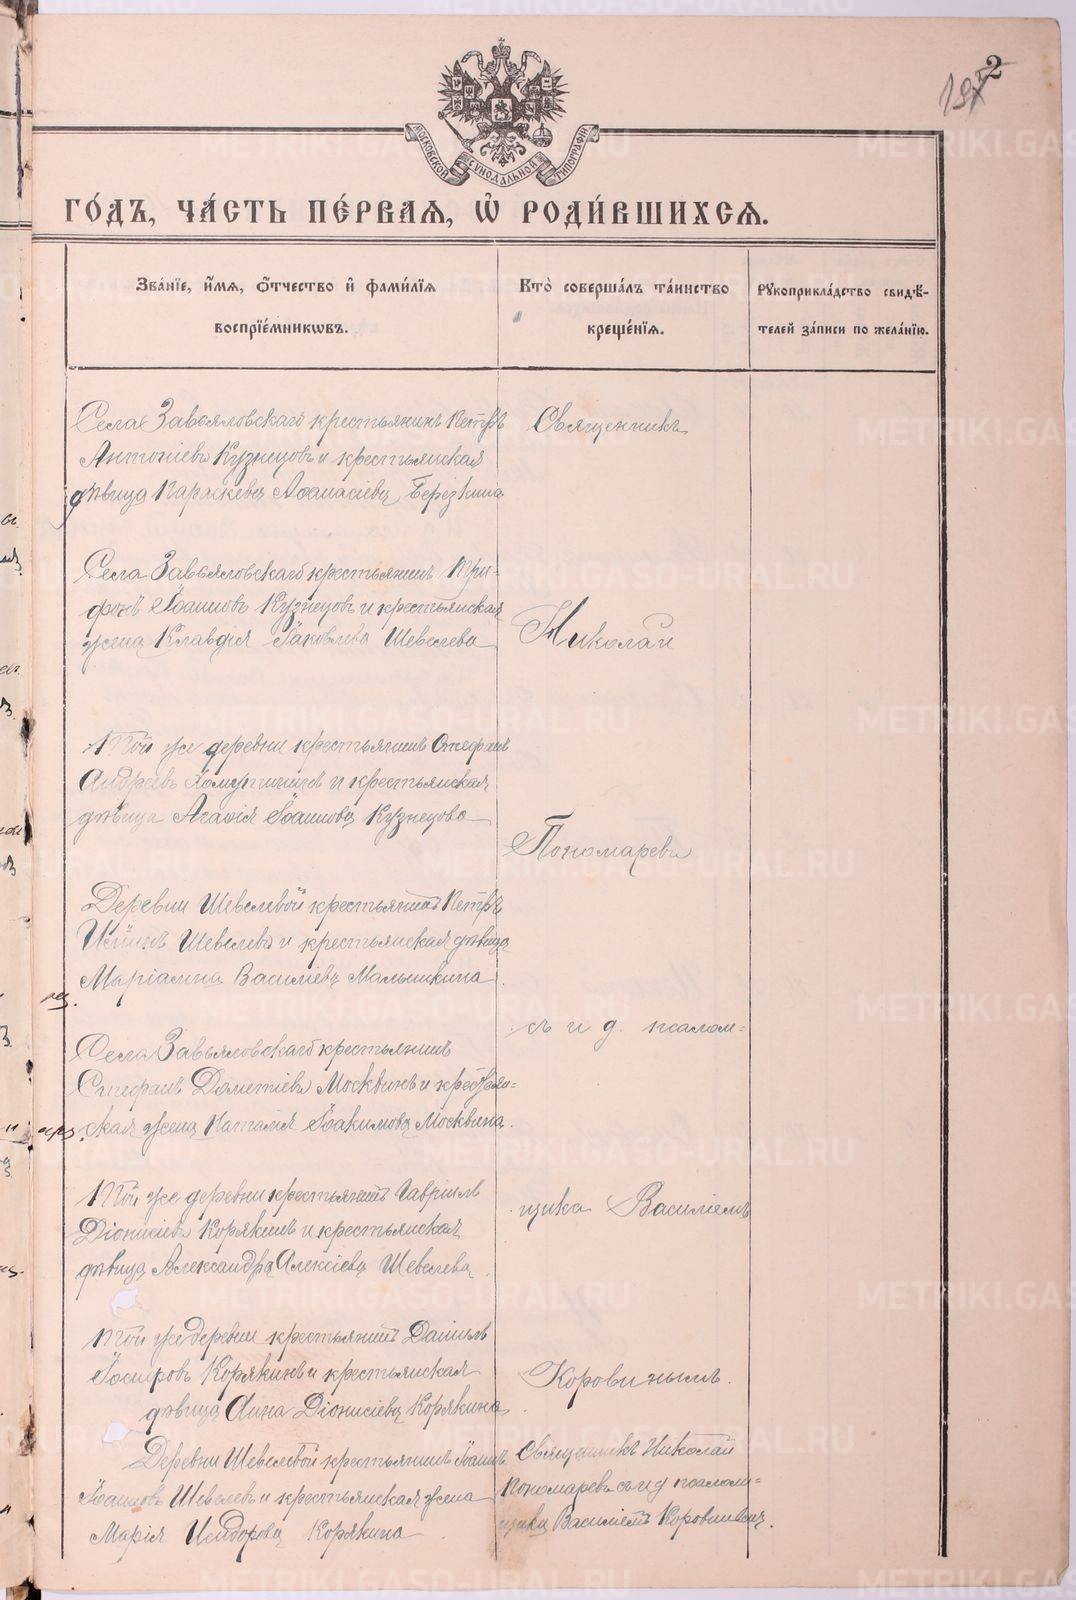 2
МОСКОВСКОЙ СѴНОДАЛЬНОЙ ТИПОГРАФІИ
ГО́ДЪ, ЧА́СТЬ ПЕ́РВАѦ, Ѽ РОДИ́ВШИХСѦ.
Зва́нїе, и҆́мѧ, ѻ҆́тчество и҆ фами́лїѧ
воспрїе́мникѡвъ.
Кто̀ соверша́лъ та́инство
креще́нїѧ.
Рꙋкоприкла́дство свидѣ́-
телей за́писи по жела́нїю.
Села Завьяловскаго крестьянинъ Петръ
Антоніевъ Кузнецовъ и крестьянская
дѣвица Параскева Аѳанасіева Берёзкина
Села Завьяловскаго крестьянинъ Три-
фонъ Іоанновъ Кузнецовъ и крестьянская
жена Клавдія Іаковлева Шевелева
Той же деревни крестьянинъ Стефанъ
Андреевъ Хомутининъ и крестьянская
дѣвица Агаѳія Іоаннова Кузнецова
Деревни Шевелевой крестьянинъ Петръ
Шевелевъ и крестьянская дѣвица
Маріамна Васильева Малышкина
Села Завьяловскаго крестьянинъ
Стефанъ Дометіевъ Москвинъ и крестьян-
ская жена Наталія Іоакимова Москвина.
Той же деревни крестьянинъ Гавріилъ
Діонисіевъ Корякинъ и крестьянская
дѣвица Александра Алексіева Шевелева
Той же деревни крестьянинъ Даніилъ
Іосифовъ Корякинъ и крестьянская
дѣвица Анна Діонисіева Корякина
Деревни Шевелевой крестьянинъ Іоаннъ
Іоанновъ Шевелевъ и крестьянская жена
Марія Исидорова Корякина
Священникъ
Николай
Пономаревъ
съ и. д. псалом-
щика Василіемъ
Коровинымъ.
Священникъ Николай
Пономаревъ съ и д псалом-
щика Василіемъ Коровинымъ.
METRIKI.GASO-URAL.RU